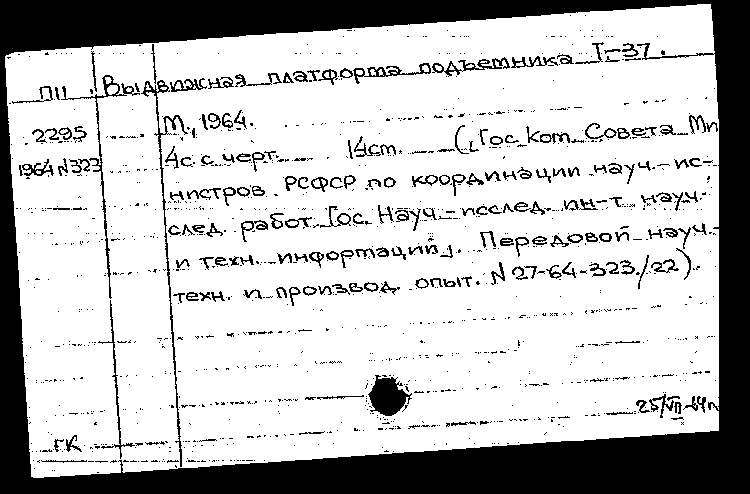 П11 Выдвижная платформа подъемника Т-37.
2295 М., 1964.
1964 N323 4с. с черт. 14см. ([Гос. Ком. Совета Ми
нистров РСФСР по координации науч.-ис-
след. работ. Гос. Науч.-исслед. ин-т науч.
и техн. информации]. Передовой науч.-
техн. и производ. опыт. N 27-64-323/22).
25/VII-64г
ГК